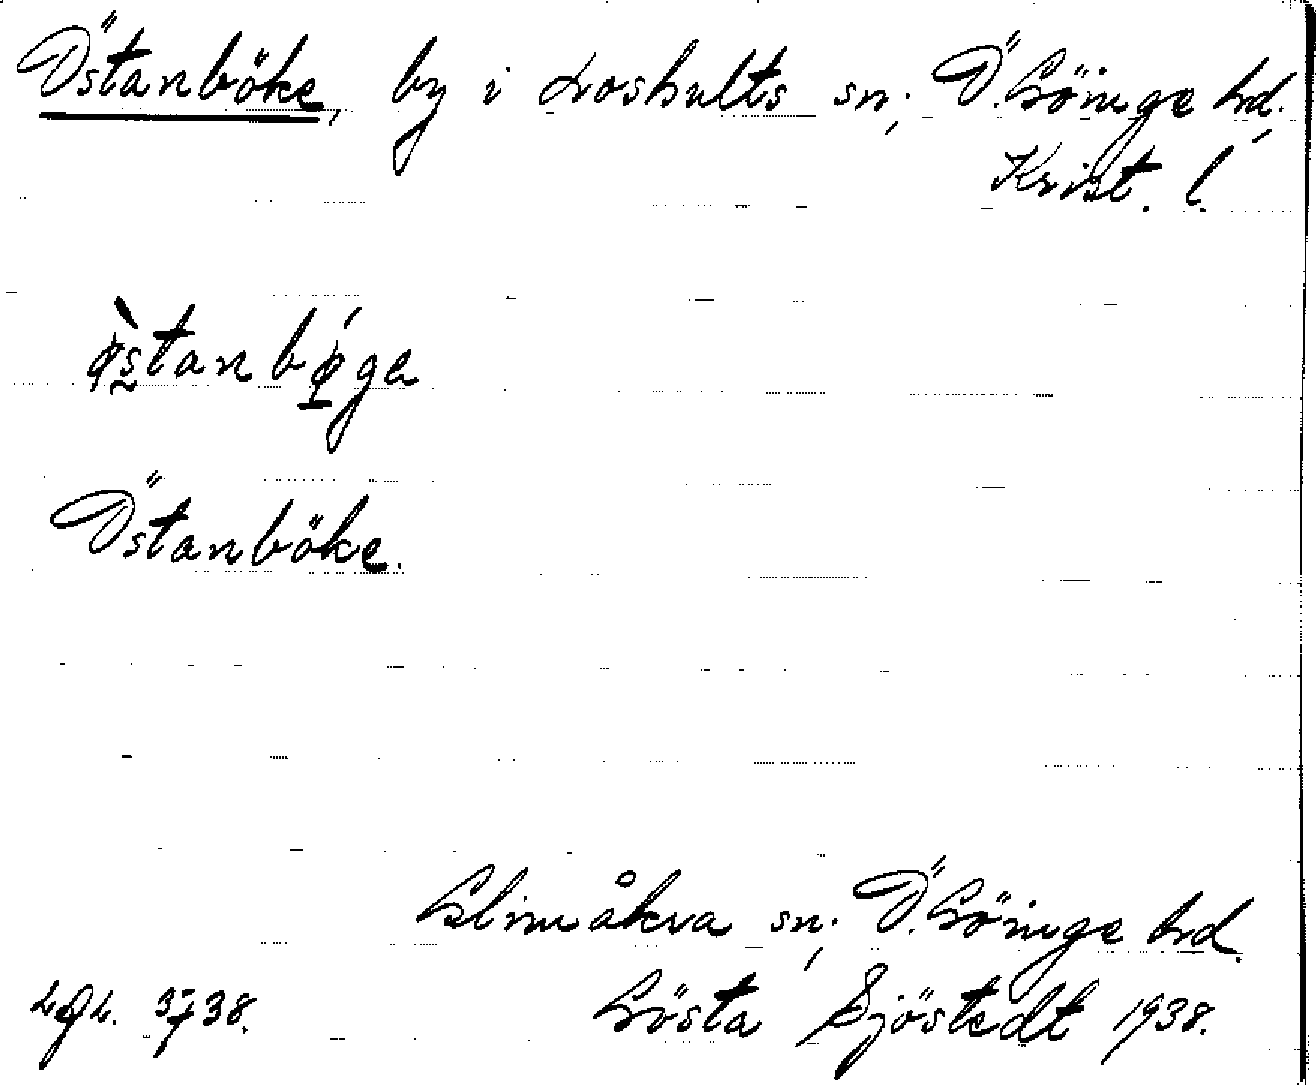 Östanböke, by i Loshults sn; Ö. Göinge hd,
Krist. l.
ø̀stanbǿga
Östanböke.
Glimåkra sn; Ö. Göinge hd.
Gösta Sjöstedt 1938.